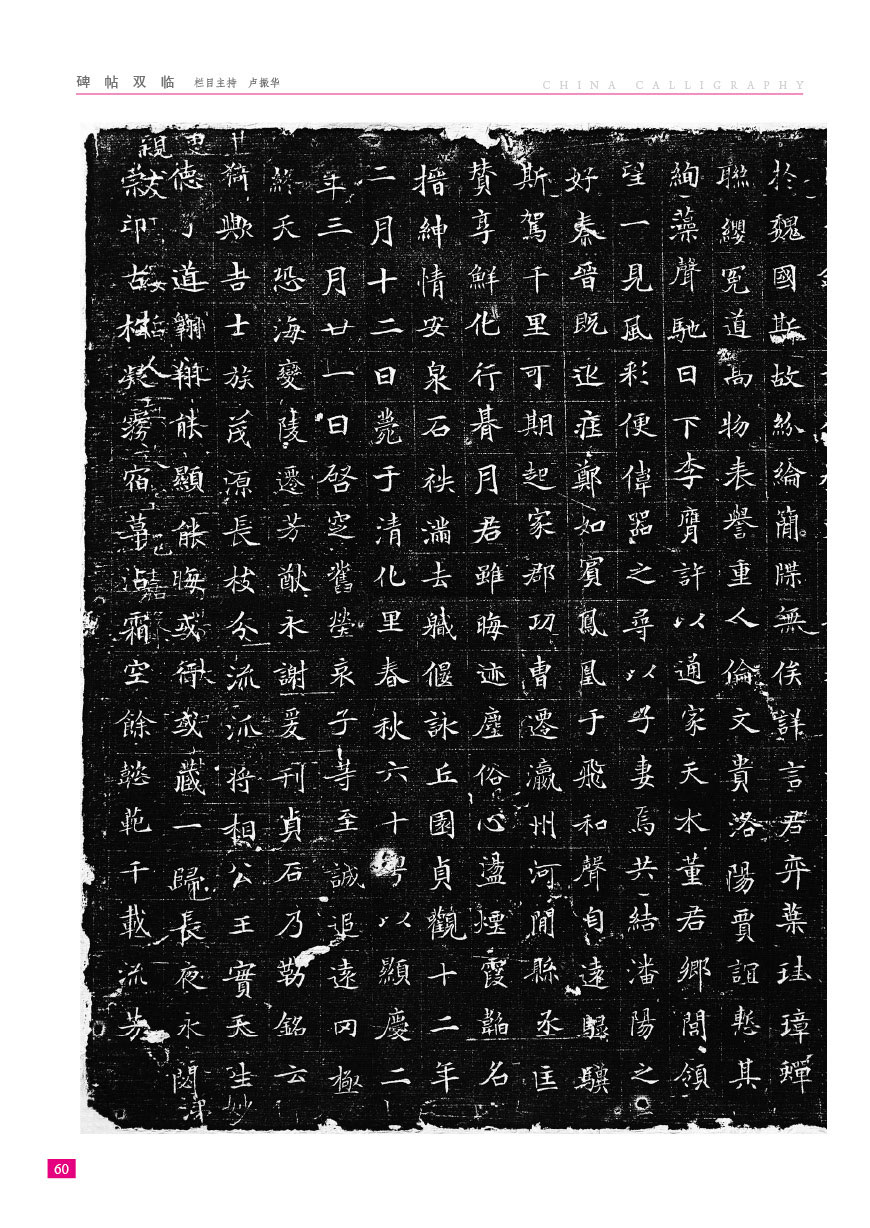 碑帖双临 栏目主持 卢振华
CHINA CALLIGRAPHY
於魏國斯故紛綸簡牒無俟詳言君弈葉珪璋蟬
聯纓冕道高物表譽重人倫文貴洛陽賈誼慙其
絢藻聲馳日下李膺許以通家天水董君鄉閭領
望一見風彩便偉器之尋以子妻焉共結潘陽之
好秦晉既迊鄭如賓鳳凰于飛和聲自遠驥
斯駕千里可期起家郡功曹遷瀛州河間縣丞匡
贊享鮮化行朞月君雖晦迹塵俗心盪煙霞韜名
搢紳情安泉石袟滿去職偃詠丘園貞觀十二年
二月十二日薨于清化里春秋六十粵以顯慶二
年三月廿一日啓窆舊塋哀子等至誠追遠罔極
終天恐海變陵遷芳猷永謝爰刊貞石乃勒銘云
猗歟吉士族茂源長枝分流派將相公王實天生
德道翱翔能顯能晦或行或藏一歸長夜永閟
崇印古柏凝霧宿墓沾霜空餘懿範千載流芳
60